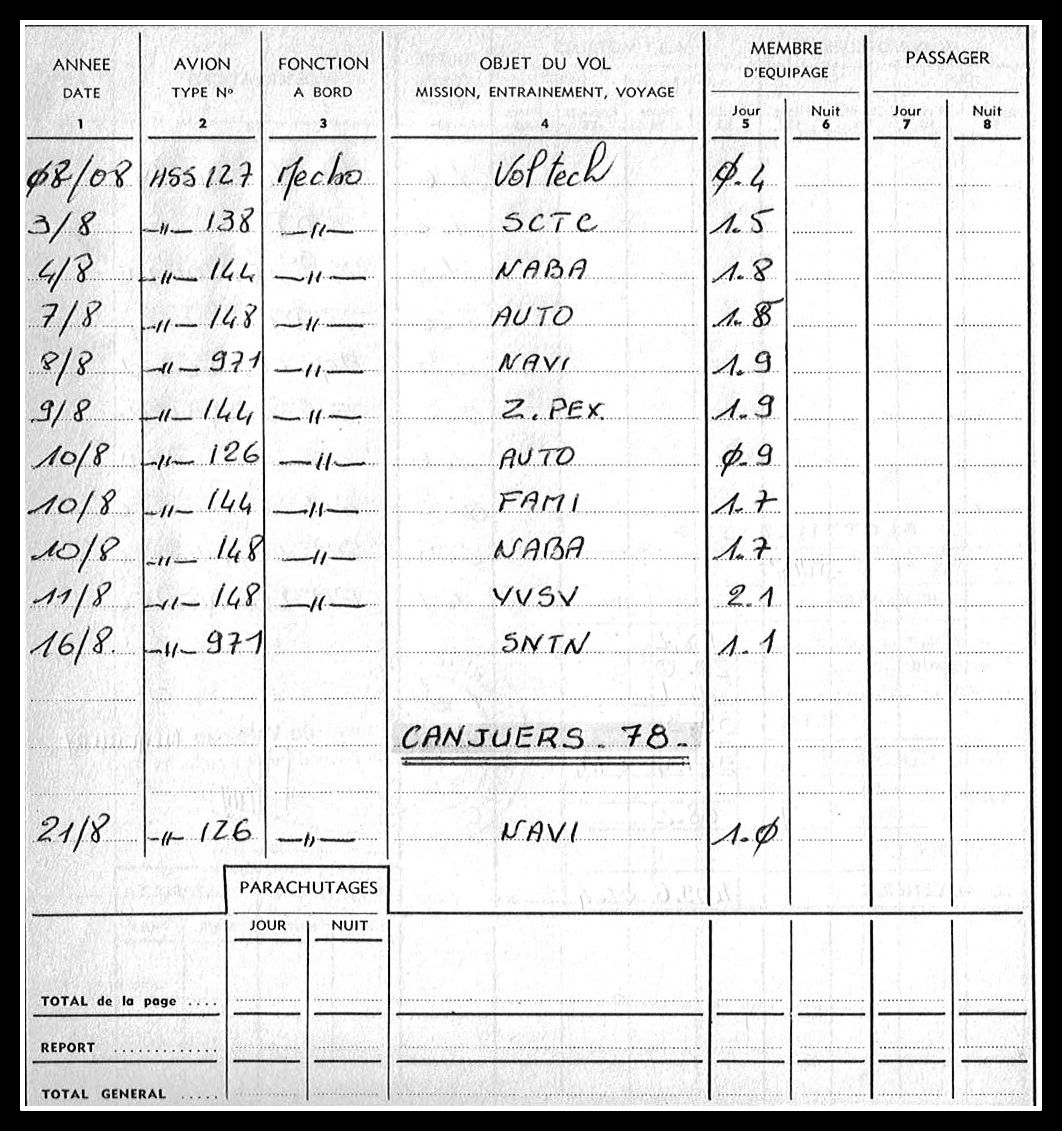 ANNEE AVION FONCTION OBJET DU VOL MEMBRE D'EQUIPAGE PASSAGER
DATE TYPE N° A BORD MISSION, ENTRAINEMENT, VOYAGE Jour Nuit Jour Nuit
1 2 3 4 5 6 7 8
02/08 HSS 127 Mecbo Vol tech Ø.4
3/8 —"— 138 —"— SCTC 1.5
4/8 —"— 144 —"— NABA 1.8
7/8 —"— 148 —"— AUTO 1.8
8/8 —"— 971 —"— NAVI 1.9
9/8 —"— 144 —"— Z.PEX. 1.9
10/8 —"— 126 —"— AUTO Ø.9
10/8 —"— 144 —"— FAMI 1.7
10/8 —"— 148 —"— NABA 1.7
11/8 —"— 148 —"— VVSV 2.1
16/8. —"— 971 SNTN 1.1
CANJUERS. 78.
21/8 —"— 126 —"— NAVI 1.Ø
PARACHUTAGES
JOUR NUIT
TOTAL de la page ....
REPORT ............
TOTAL GENERAL .....